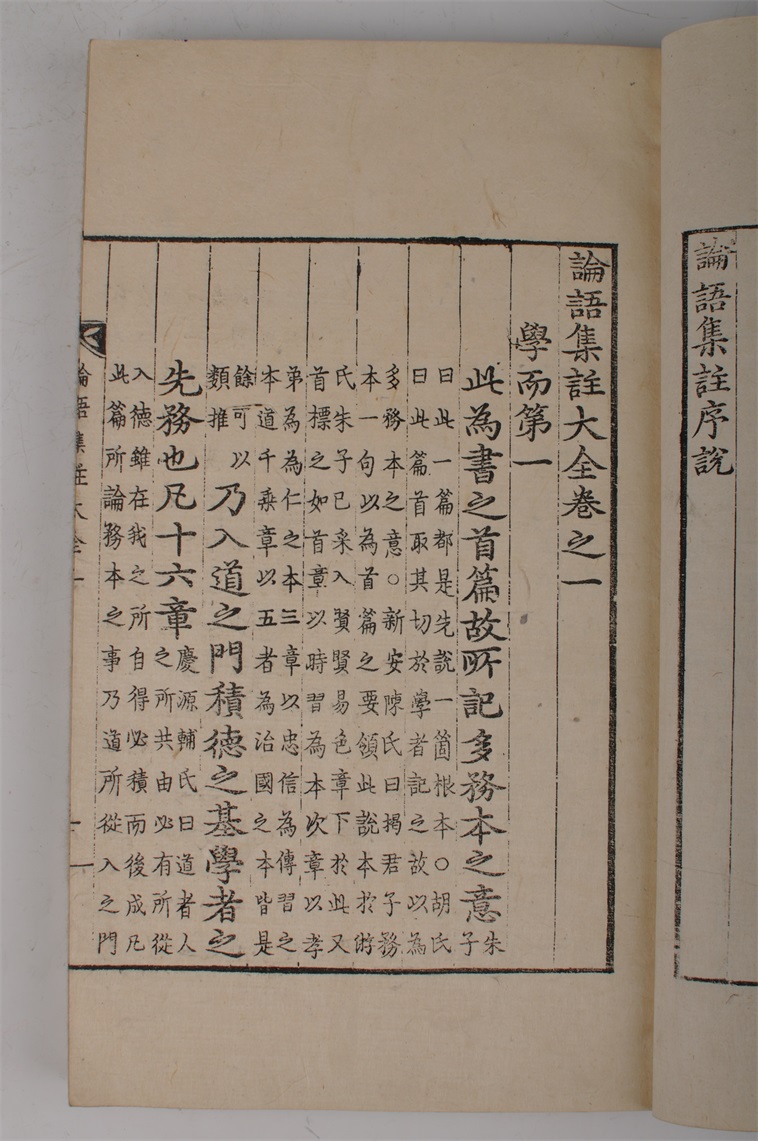 論語集註序說
論語集註大全卷之一
學而第一
此為書之首篇故所記多務本之意朱子
曰此一篇都是先說一箇根本○胡氏
曰此篇首取其切於學者記之故以為
多務本之意○新安陳氏曰揭君子務
本一句以為首篇之要領此說本於游
氏朱子已采入賢賢易色章下於此又
首標之如首章以時習為本次章以孝
弟為為仁之本三章以忠信為傳習之
本道千乘章以五者為治國之本皆是
餘可以
類推
乃入道之門積德之基學者之
先務也凡十六章
慶源輔氏曰道者人
之所共由必有所從
入德雖在我之所自得必積而後成凡
此篇所論務本之事乃道所從入之門
論語集註大全一
一